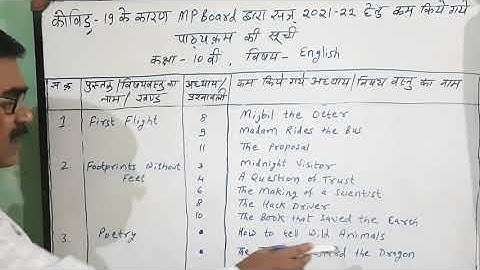 कोविड-19 के कारण MP Board द्वारा सत्र 2021-22 हेतु कम किये गये
पाठ्यक्रम की सूची
कक्षा-10 वी, विषय- English
स.क्र. पुस्तक/विषयवस्तु का नाम/खण्ड अध्याय/प्रश्नावली कम किये गये अध्याय/विषय वस्तु का नाम
1 First Flight 8 Mijbil the Otter
9 Madam Rides the Bus
11 The Proposal
2 Footprints Without Feet 3 Midnight Visitor
4 A Question of Trust
6 The Making of a Scientist
8 The Hack Driver
10 The Book that Saved the Earth
3. Poetry • How to tell Wild Animals
• The the Dragon